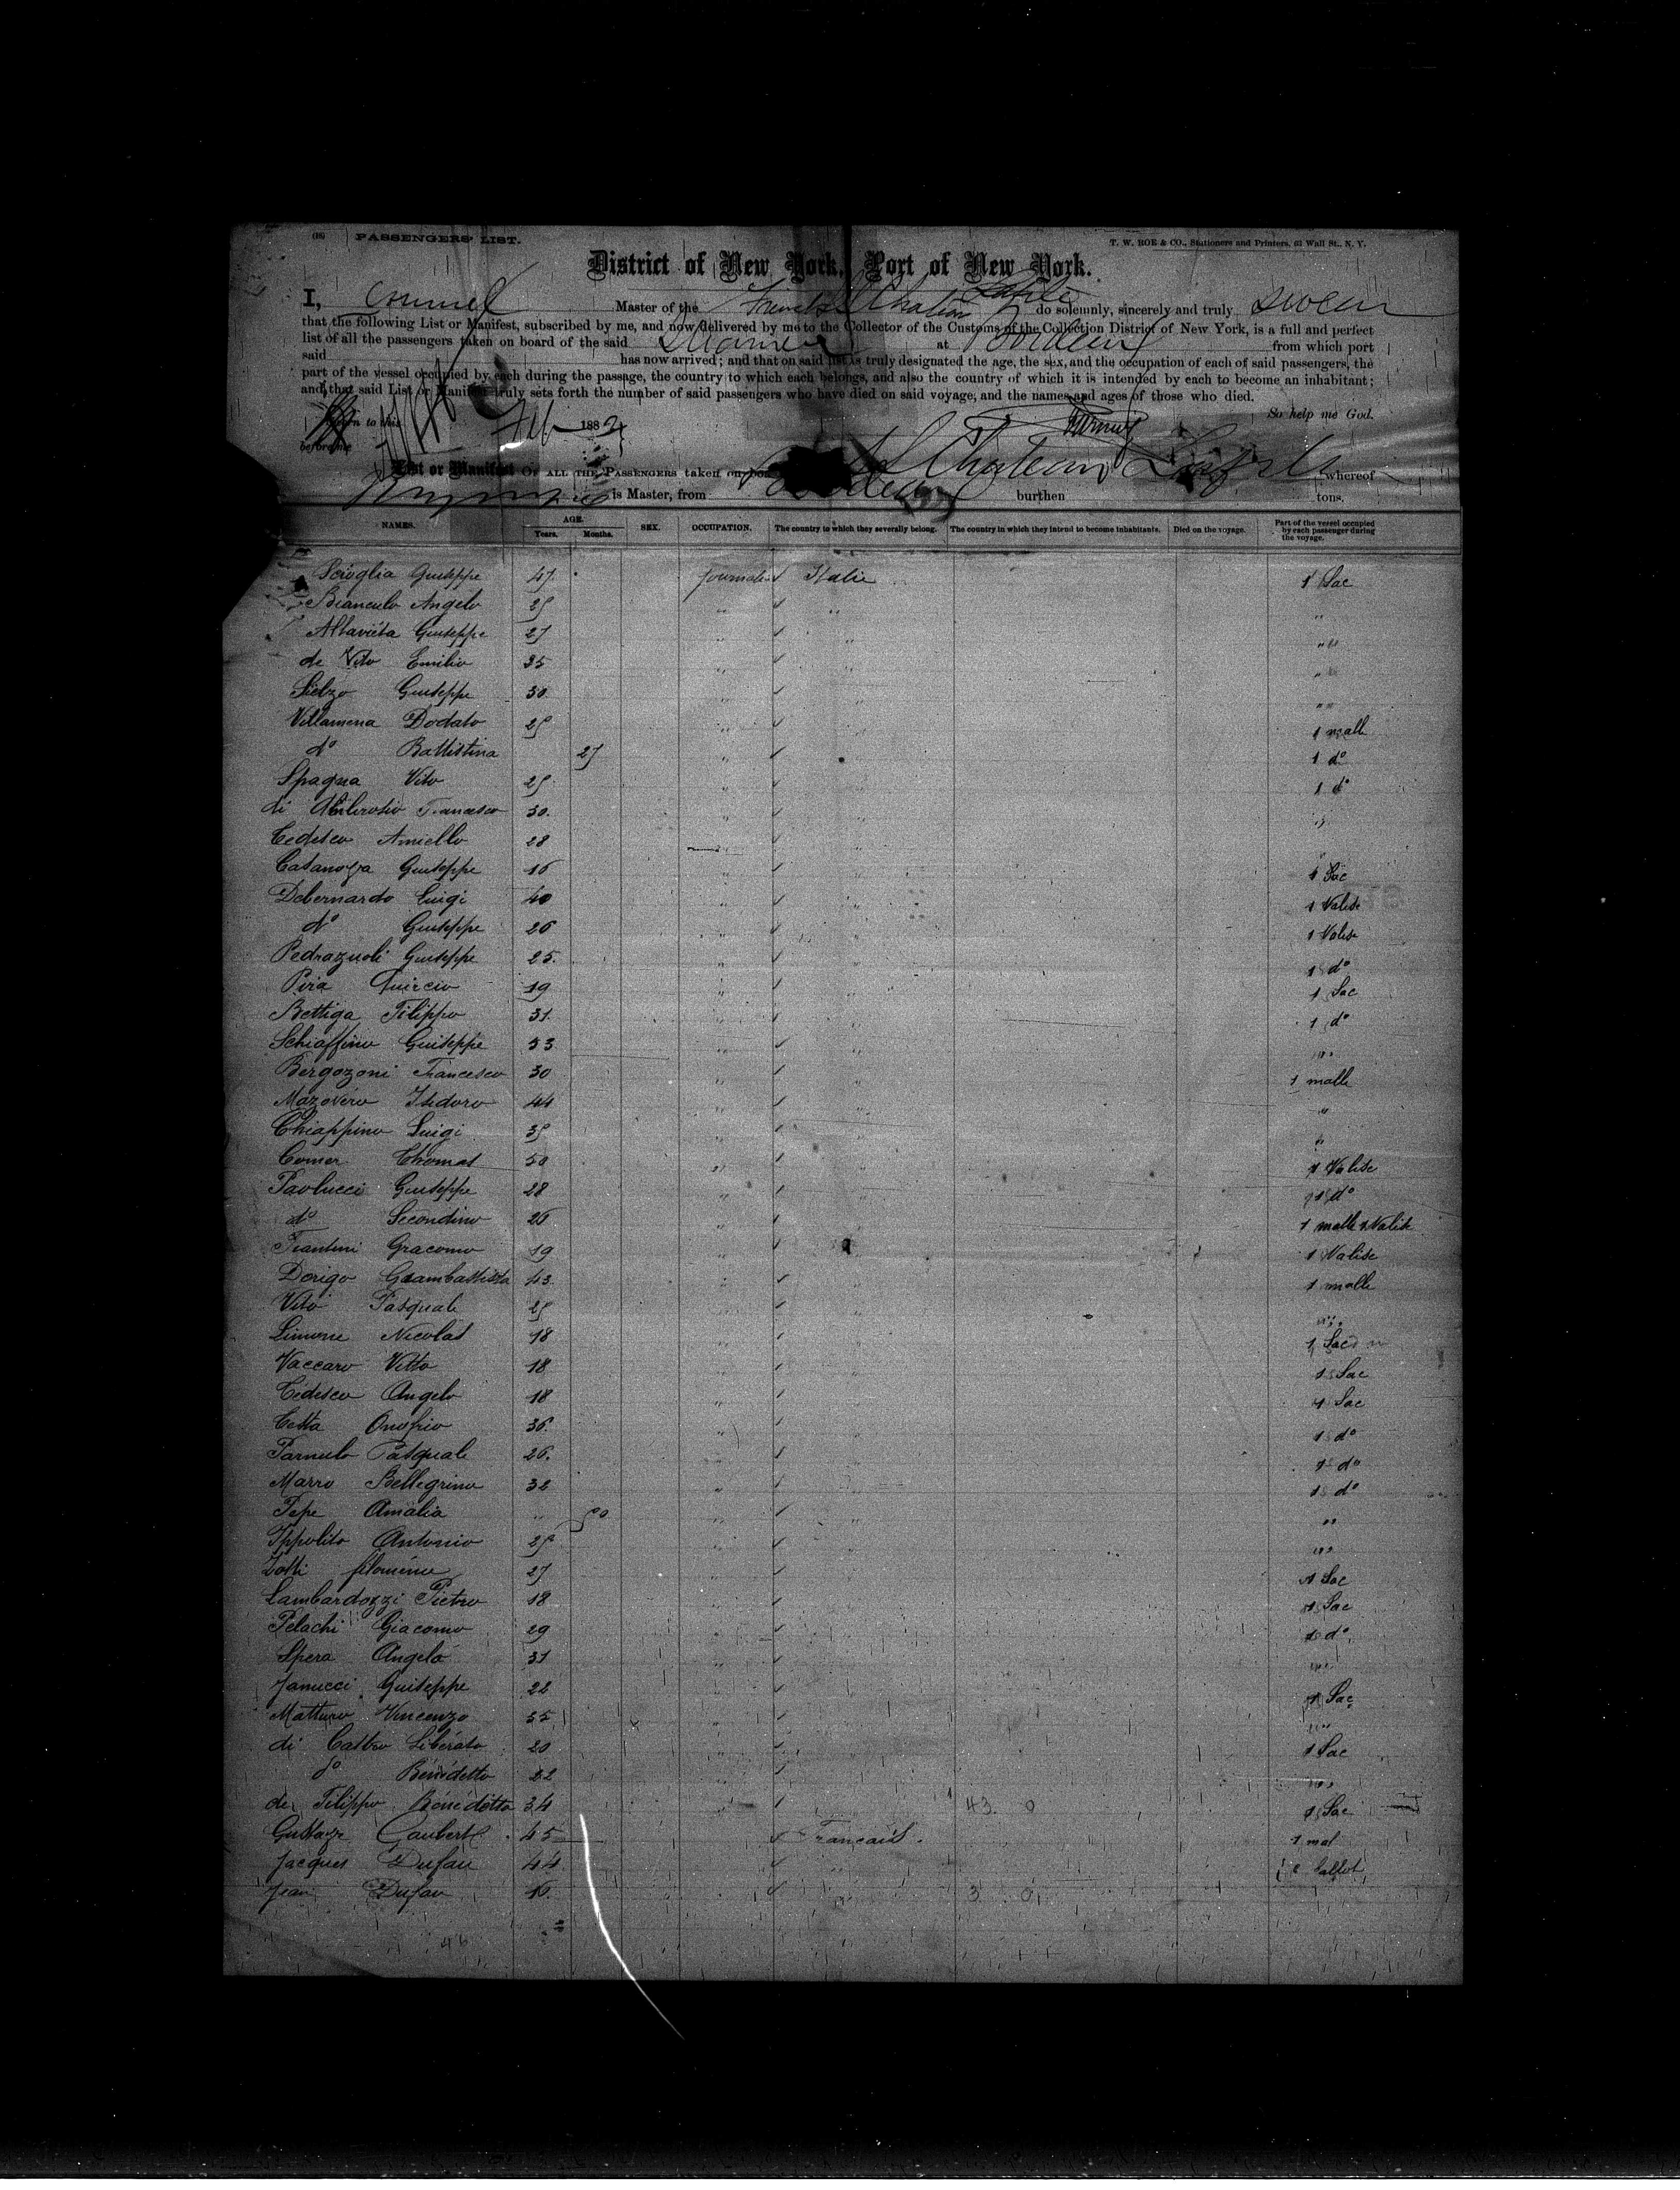 (18) PASSENGERS' LIST.
T. W. ROE & CO., Stationers and Printers, 61 Wall St., N. Y.
District of New York, Port of New York.
I, Master of the Chateau Lafite do solemnly, sincerely and truly swear
that the following List or Manifest, subscribed by me, and now delivered by me to the Collector of the Customs of the Collection District of New York, is a full and perfect
list of all the passengers taken on board of the said Steamer at Bordeaux from which port
said has now arrived; and that on said list is truly designated the age, the sex, and the occupation of each of said passengers, the
part of the vessel occupied by each during the passage, the country to which each belongs, and also the country of which it is intended by each to become an inhabitant;
and that said List or Manifest truly sets forth the number of said passengers who have died on said voyage, and the names and ages of those who died.
So help me God.
Sworn to this Feb 188
before me
List or Manifest OF ALL THE PASSENGERS taken on board Chateau Lafite whereof
is Master, from Bordeaux burthen tons.
NAMES. AGE. Years. Months. SEX. OCCUPATION. The country to which they severally belong. The country in which they intend to become inhabitants. Died on the voyage. Part of the vessel occupied by each passenger during the voyage.
Scioglia Giuseppe 47 journalier Italie 1 Sac
Bianculo Angelo 25 " " "
Altavista Giuseppe 27 " " "
de Vito Emilio 35 " " "
Giuseppe 30 " " "
Villamena Dodato 25 " " 1 malle
do Battistina 27 " 1 do
Spagna Vito 25 " " 1 do
di Ambrosio Francesco 30. " " "
Tedesco Aniello 28 " "
Casanova Giuseppe 16 " " 1 Sac
Debernardo Luigi 40 " " 1 Valise
do Giuseppe 26 " " 1 Valise
Pedrazuoli Giuseppe 25. " " 1 do
Pira Quircio 19 " " 1 Sac
Bettiga Filippo 31. " " 1 do
Schiaffino Giuseppe 53 " " "
Bergozoni Francesco 30 " " 1 malle
Mazovero Isidoro 44 " " "
Chiappino Luigi 35 " " "
Comer Thomas 50 " " 1 Valise
Paolucci Giuseppe 28 " " 1 do
do Secondino 26 " " 1 malle 1 Valise
Giacomo 19 " " 1 Valise
Dorigo Giambattista 43. " " 1 malle
Vito Pasquale 25 " " "
Simone Nicolas 18 " " 1 Sac
Vaccaro Vitto 18 " " 1 Sac
Tedesco Angelo 18 " " 1 Sac
Costa Onofrio 36. " " 1 do
Pasquale 26. " " 1 do
Marro Bellegrino 32 " " 1 do
Pepe Amalia " " " "
Ippolito Antonio " " "
Zotti filomena 27 " " 1 Sac
Lambardozzi Pietro 18 " " 1 Sac
Pelachi Giacomo 29 " " 1 do
Spera Angelo 31 " " "
Janucci Giuseppe 22 " " 1 Sac
Matturo Vincenzo 35 " " "
di Castro Liberato 20 " " 1 Sac
do Bénédetto 22 " "
de Filippo Bénédetto 34 43. 0 1 Sac
Gustave Gaubert 45 Francais. 1 mal
Jacques Dufau 44 "
Jean Dufau 16. " 3 0
46